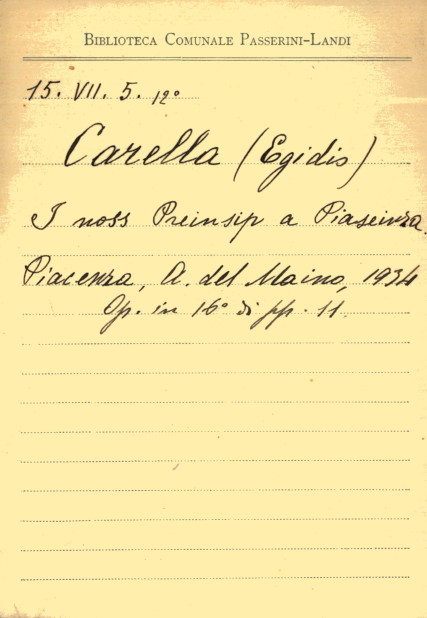 BIBLIOTECA COMUNALE PASSERINI-LANDI
15. VII. 5. 12°
Carella (Egidio)
I noss Preinsip a Piaseinza.
Piacenza, A. del Maino, 1934
Op. in 16° di pp. 11.